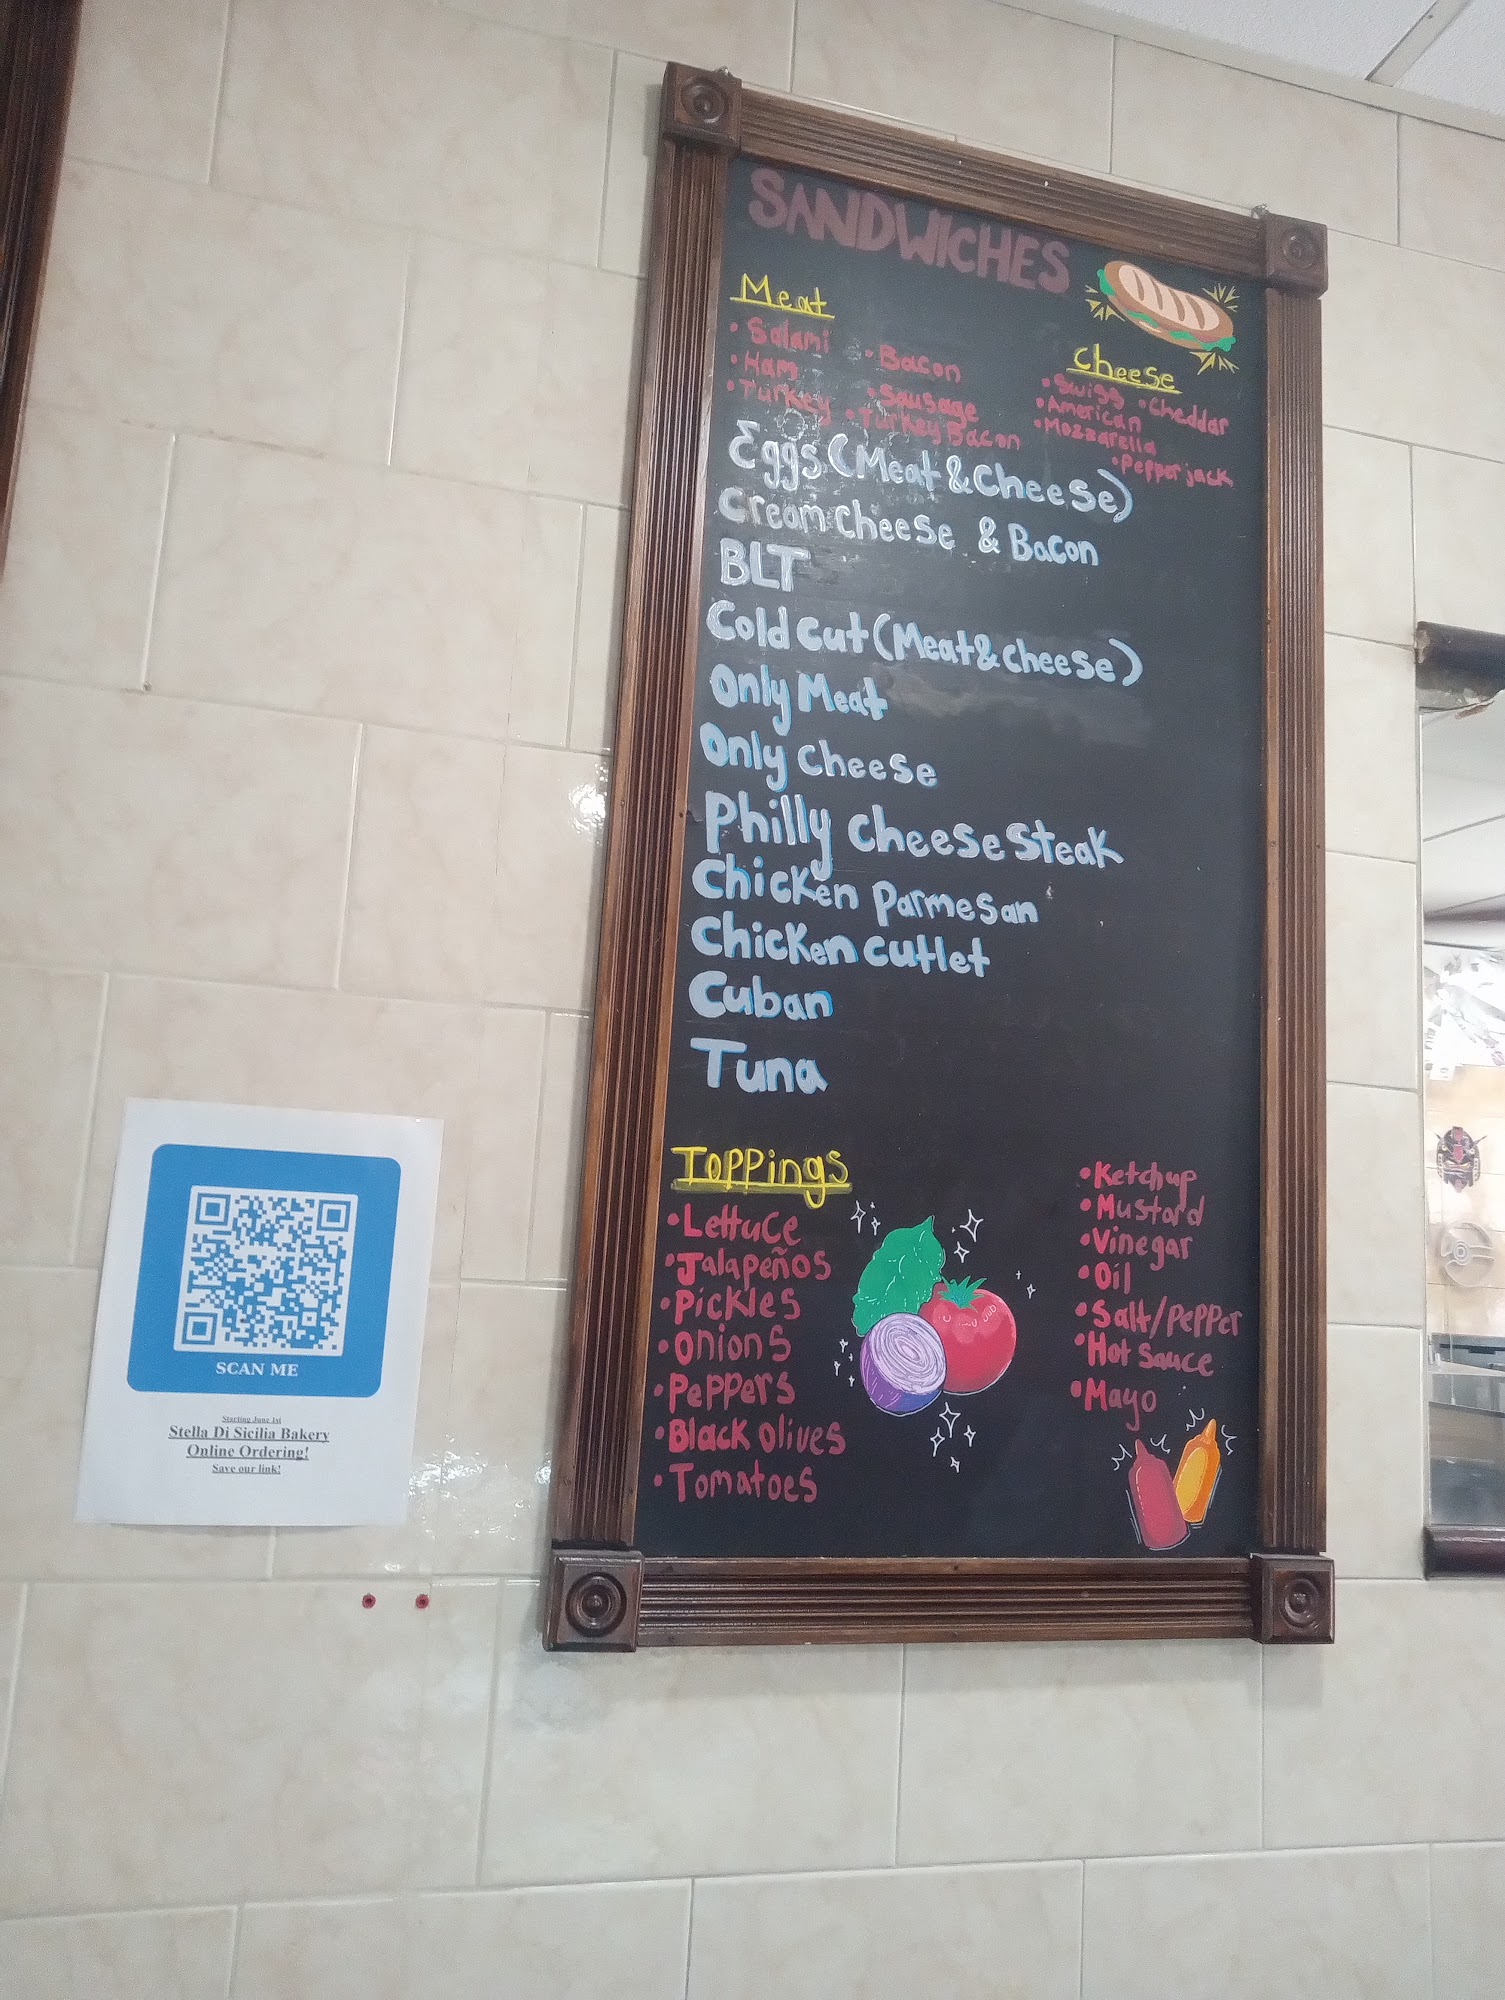 SANDWICHES
Meat
• Salami
• Ham
• Turkey
• Bacon
• Sausage
• Turkey Bacon
Cheese
• Swiss • Cheddar
• American
• Mozzarella
• Pepper jack
Eggs (Meat & Cheese)
Cream Cheese & Bacon
BLT
Cold Cut (Meat & Cheese)
Only Meat
Only Cheese
Philly Cheese Steak
Chicken Parmesan
Chicken Cutlet
Cuban
Tuna
Toppings
• Lettuce
• Jalapeños
• Pickles
• Onions
• Peppers
• Black Olives
• Tomatoes
• Ketchup
• Mustard
• Vinegar
• Oil
• Salt/Pepper
• Hot Sauce
• Mayo
SCAN ME
Starting June 1st
Stella Di Sicilia Bakery
Online Ordering!
Save our link!